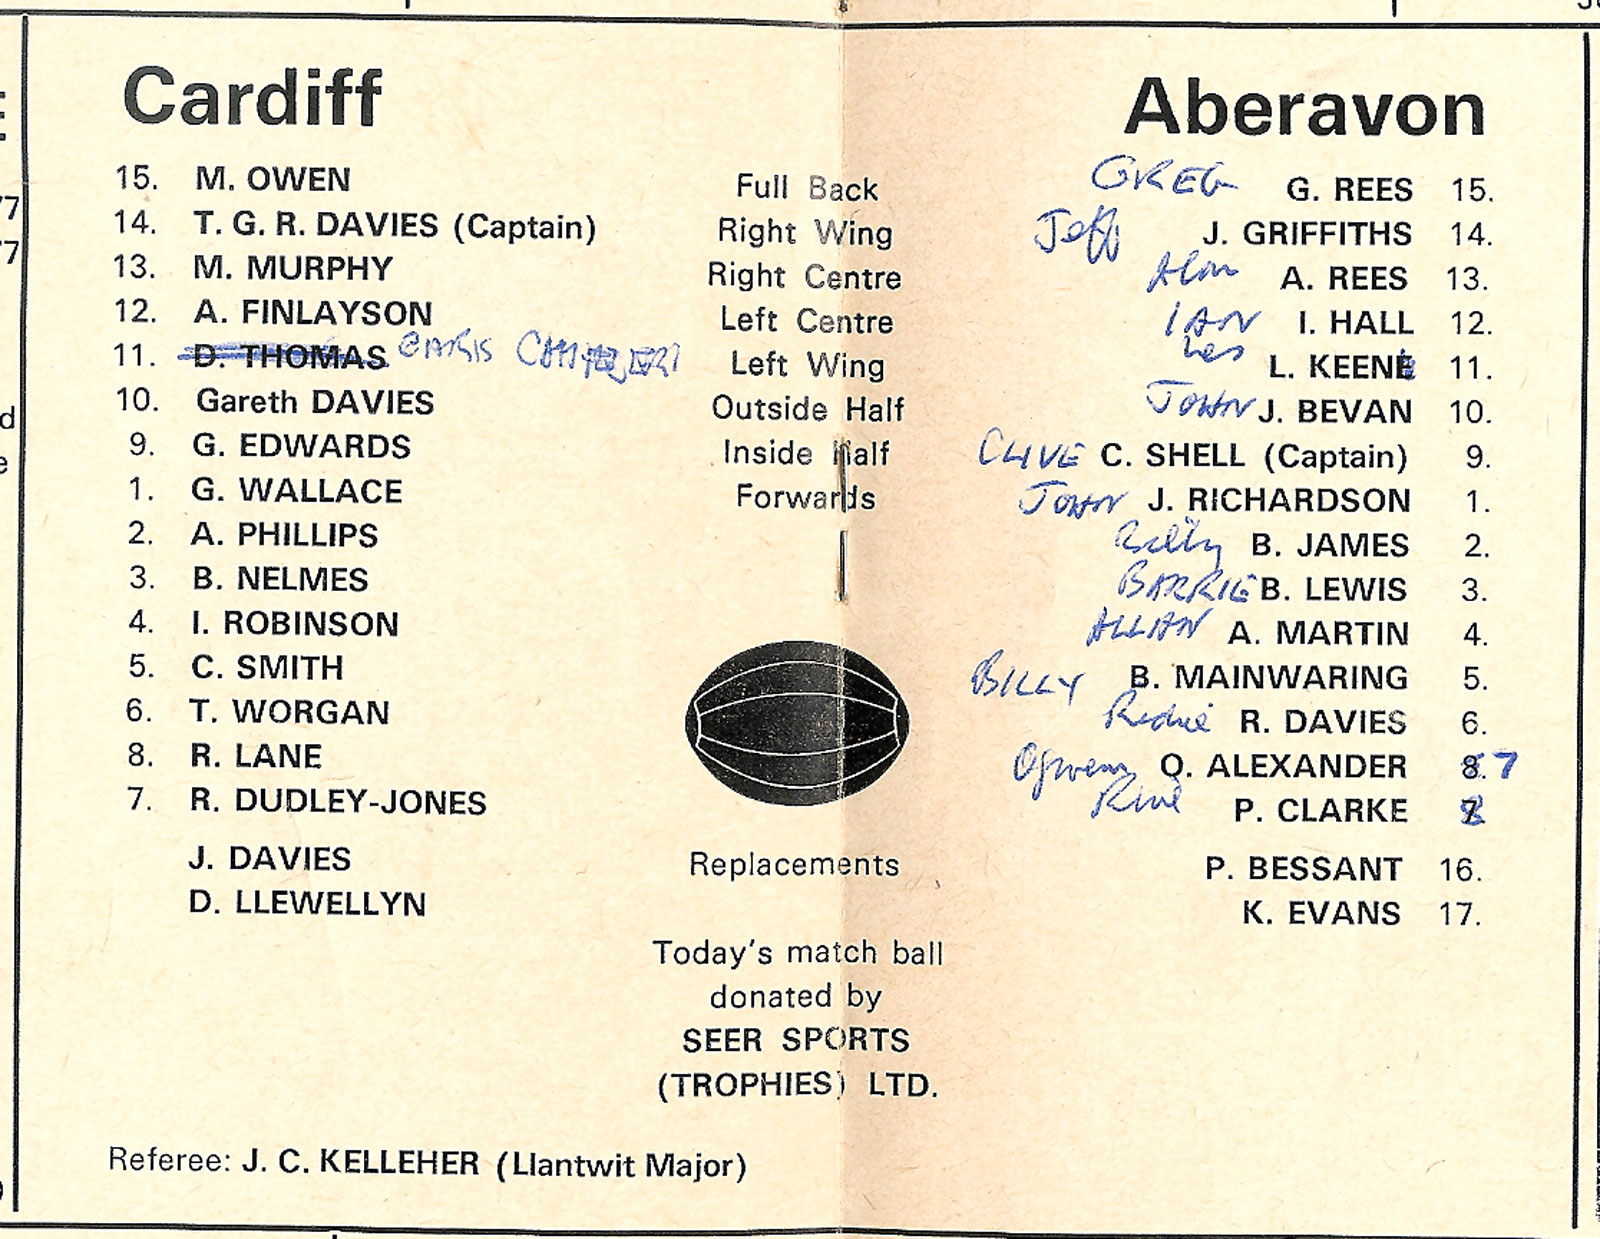 Cardiff
15. M. OWEN
14. T. G. R. DAVIES (Captain)
13. M. MURPHY
12. A. FINLAYSON
11. D. THOMAS
10. Gareth DAVIES
9. G. EDWARDS
1. G. WALLACE
2. A. PHILLIPS
3. B. NELMES
4. I. ROBINSON
5. C. SMITH
6. T. WORGAN
8. R. LANE
7. R. DUDLEY-JONES
J. DAVIES
D. LLEWELLYN
Full Back
Right Wing
Right Centre
Left Centre
Left Wing
Outside Half
Inside Half
Forwards
Replacements
Today's match ball
donated by
SEER SPORTS
(TROPHIES) LTD.
Aberavon
GREG G. REES 15.
Jeff J. GRIFFITHS 14.
Alan A. REES 13.
IAN I. HALL 12.
Les L. KEENE 11.
JOHN J. BEVAN 10.
CLIVE C. SHELL (Captain) 9.
JOHN J. RICHARDSON 1.
Billy B. JAMES 2.
BARRIE B. LEWIS 3.
ALLAN A. MARTIN 4.
BILLY B. MAINWARING 5.
R. DAVIES 6.
O. ALEXANDER 8. 7
P. CLARKE 7. 8
P. BESSANT 16.
K. EVANS 17.
Referee: J. C. KELLEHER (Llantwit Major)